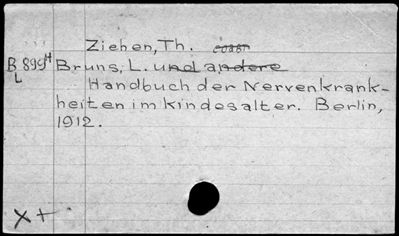 Ziehen, Th.
B 899 H Bruns, L. und andere
L Handbuch der Nervenkrank-
heiten im Kindesalter. Berlin,
1912.
X +